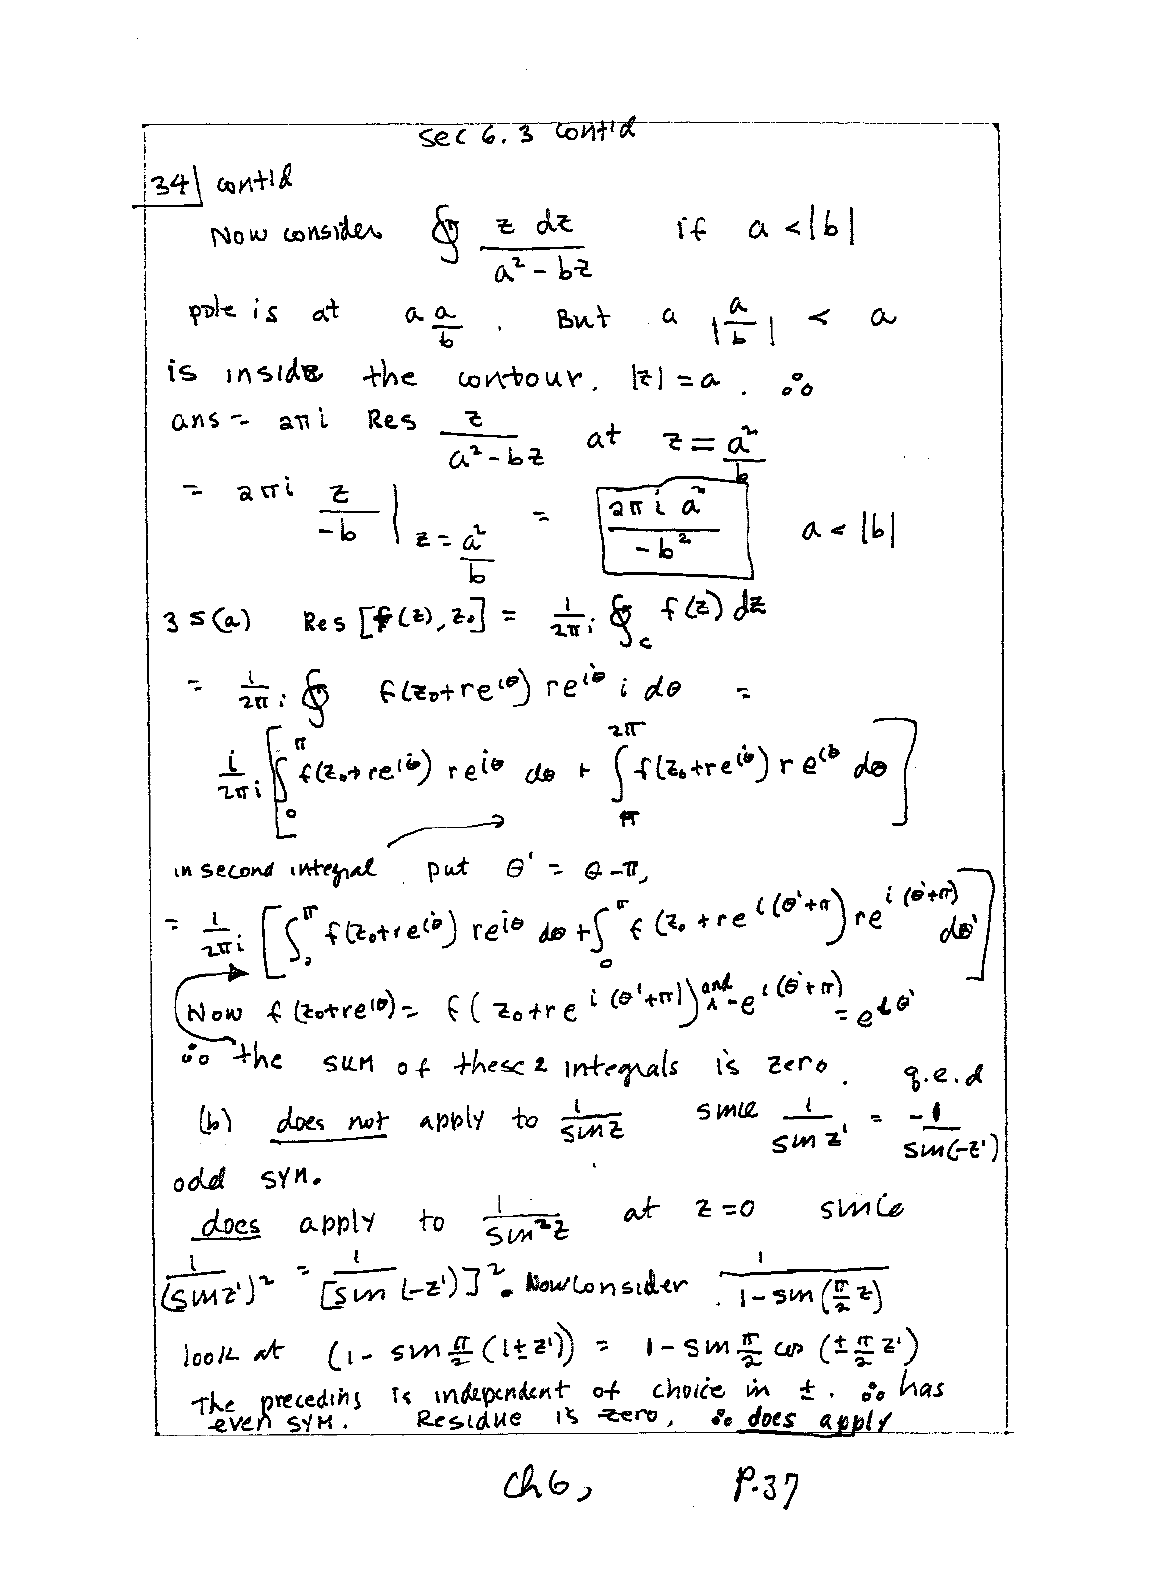 Sec 6.3 cont'd
34 cont'd
Now consider ∮ z dz / (a² - bz) if a < |b|
pole is at a a/b . But a |a/b| < a
is inside the contour. |z| = a . ∴
ans = 2πi Res z / (a² - bz) at z = a²/b
= 2πi z/-b | z = a²/b = 2πi a² / -b² a < |b|
35(a) Res [f(z), z₀] = 1/2πi ∮_c f(z) dz
= 1/2πi ∮ f(z₀+re^{iθ}) re^{iθ} i dθ =
i/2πi [ ∫_0^π f(z₀+re^{iθ}) re^{iθ} dθ + ∫_π^{2π} f(z₀+re^{iθ}) re^{iθ} dθ ]
in second integral put θ' = θ-π,
= 1/2πi [ ∫_0^π f(z₀+re^{iθ}) re^{iθ} dθ + ∫_0^π f(z₀+re^{i(θ'+π)}) re^{i(θ'+π)} dθ' ]
Now f(z₀+re^{iθ}) = f(z₀+re^{i(θ'+π)}) and -e^{i(θ'+π)} = e^{iθ'}
∴ the sum of these 2 integrals is zero. q.e.d
(b) does not apply to 1/sin z since 1/sin z' = -1/sin(-z')
odd sym.
does apply to 1/sin²z at z=0 since
1/(sin z')² = 1/[sin(-z')]². Now consider 1/(1-sin(π/2 z))
look at (1- sin π/2 (1±z')) = 1- sin π/2 cos (± π/2 z')
The preceding is independent of choice in ±. ∴ has
even sym. Residue is zero, ∴ does apply
Ch6, P.37